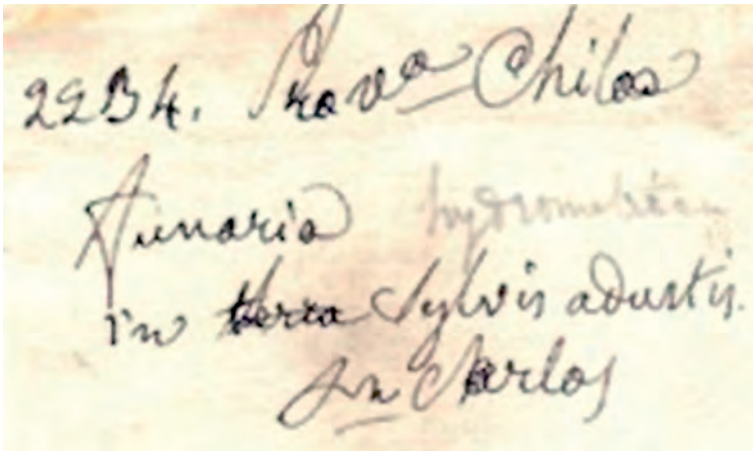 2234. Prov<sup>a</sup> Chiloe
Funaria hydrometrica
in terra Sylvis adustis.
Sn Carlos